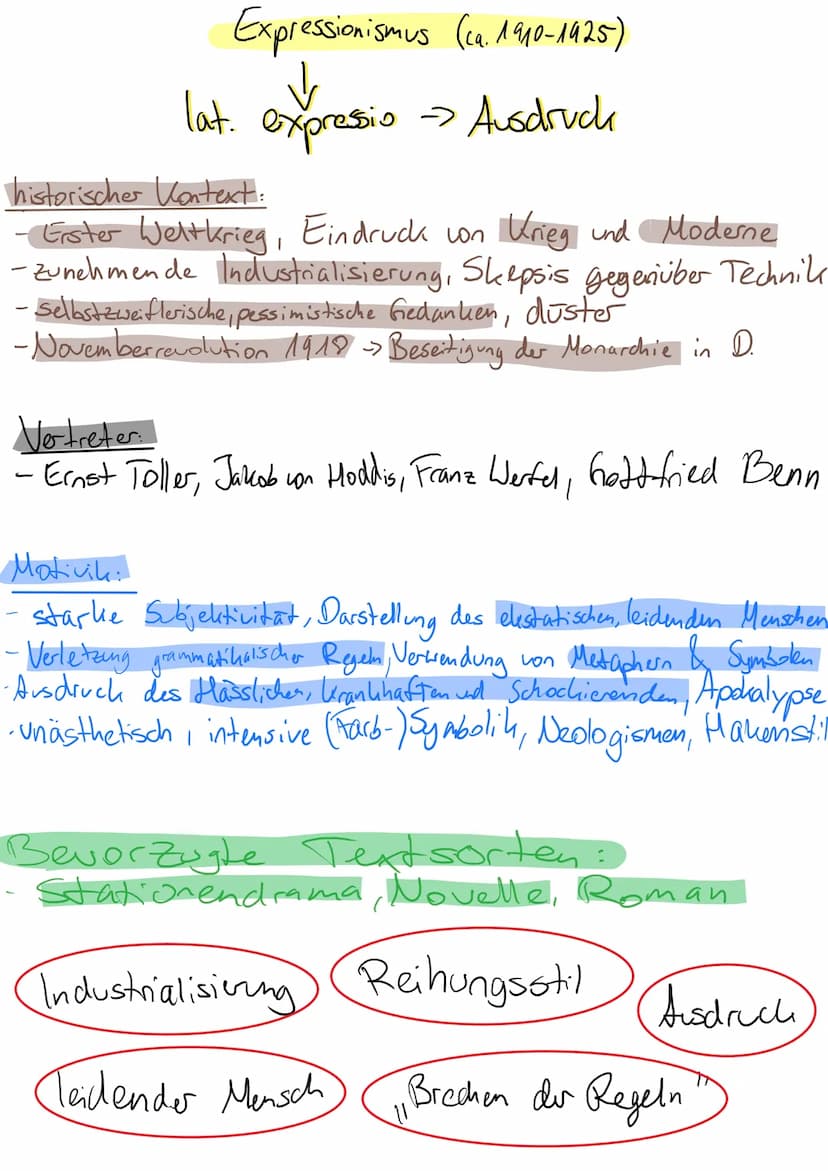 Expressionismus (ca. 1910-1925)
↓
lat. expressio -> Ausdruck
historischer Kontext:
- Erster Weltkrieg, Eindruck von Krieg und Moderne
- zunehmende Industrialisierung, Skepsis gegenüber Technik
- selbstzweiflerische, pessimistische Gedanken, düster
- Novemberrevolution 1918 -> Beseitigung der Monarchie in D.
Vertreter:
- Ernst Toller, Jakob von Hoddis, Franz Werfel, Gottfried Benn
Motivik:
- starke Subjektivität, Darstellung des ekstatischen, leidenden Menschen
- Verletzung grammatikalischer Regeln, Verwendung von Metaphern & Symbolen
- Ausdruck des Hässlichen, krankhaften und Schockierenden, Apokalypse
- unästhetisch, intensive (Farb-)Symbolik, Neologismen, Hakenstil
Bevorzugte Textsorten:
- Stationendrama, Novelle, Roman
Industrialisierung
Reihungsstil
Ausdruck
leidender Mensch
„Brechen der Regeln"